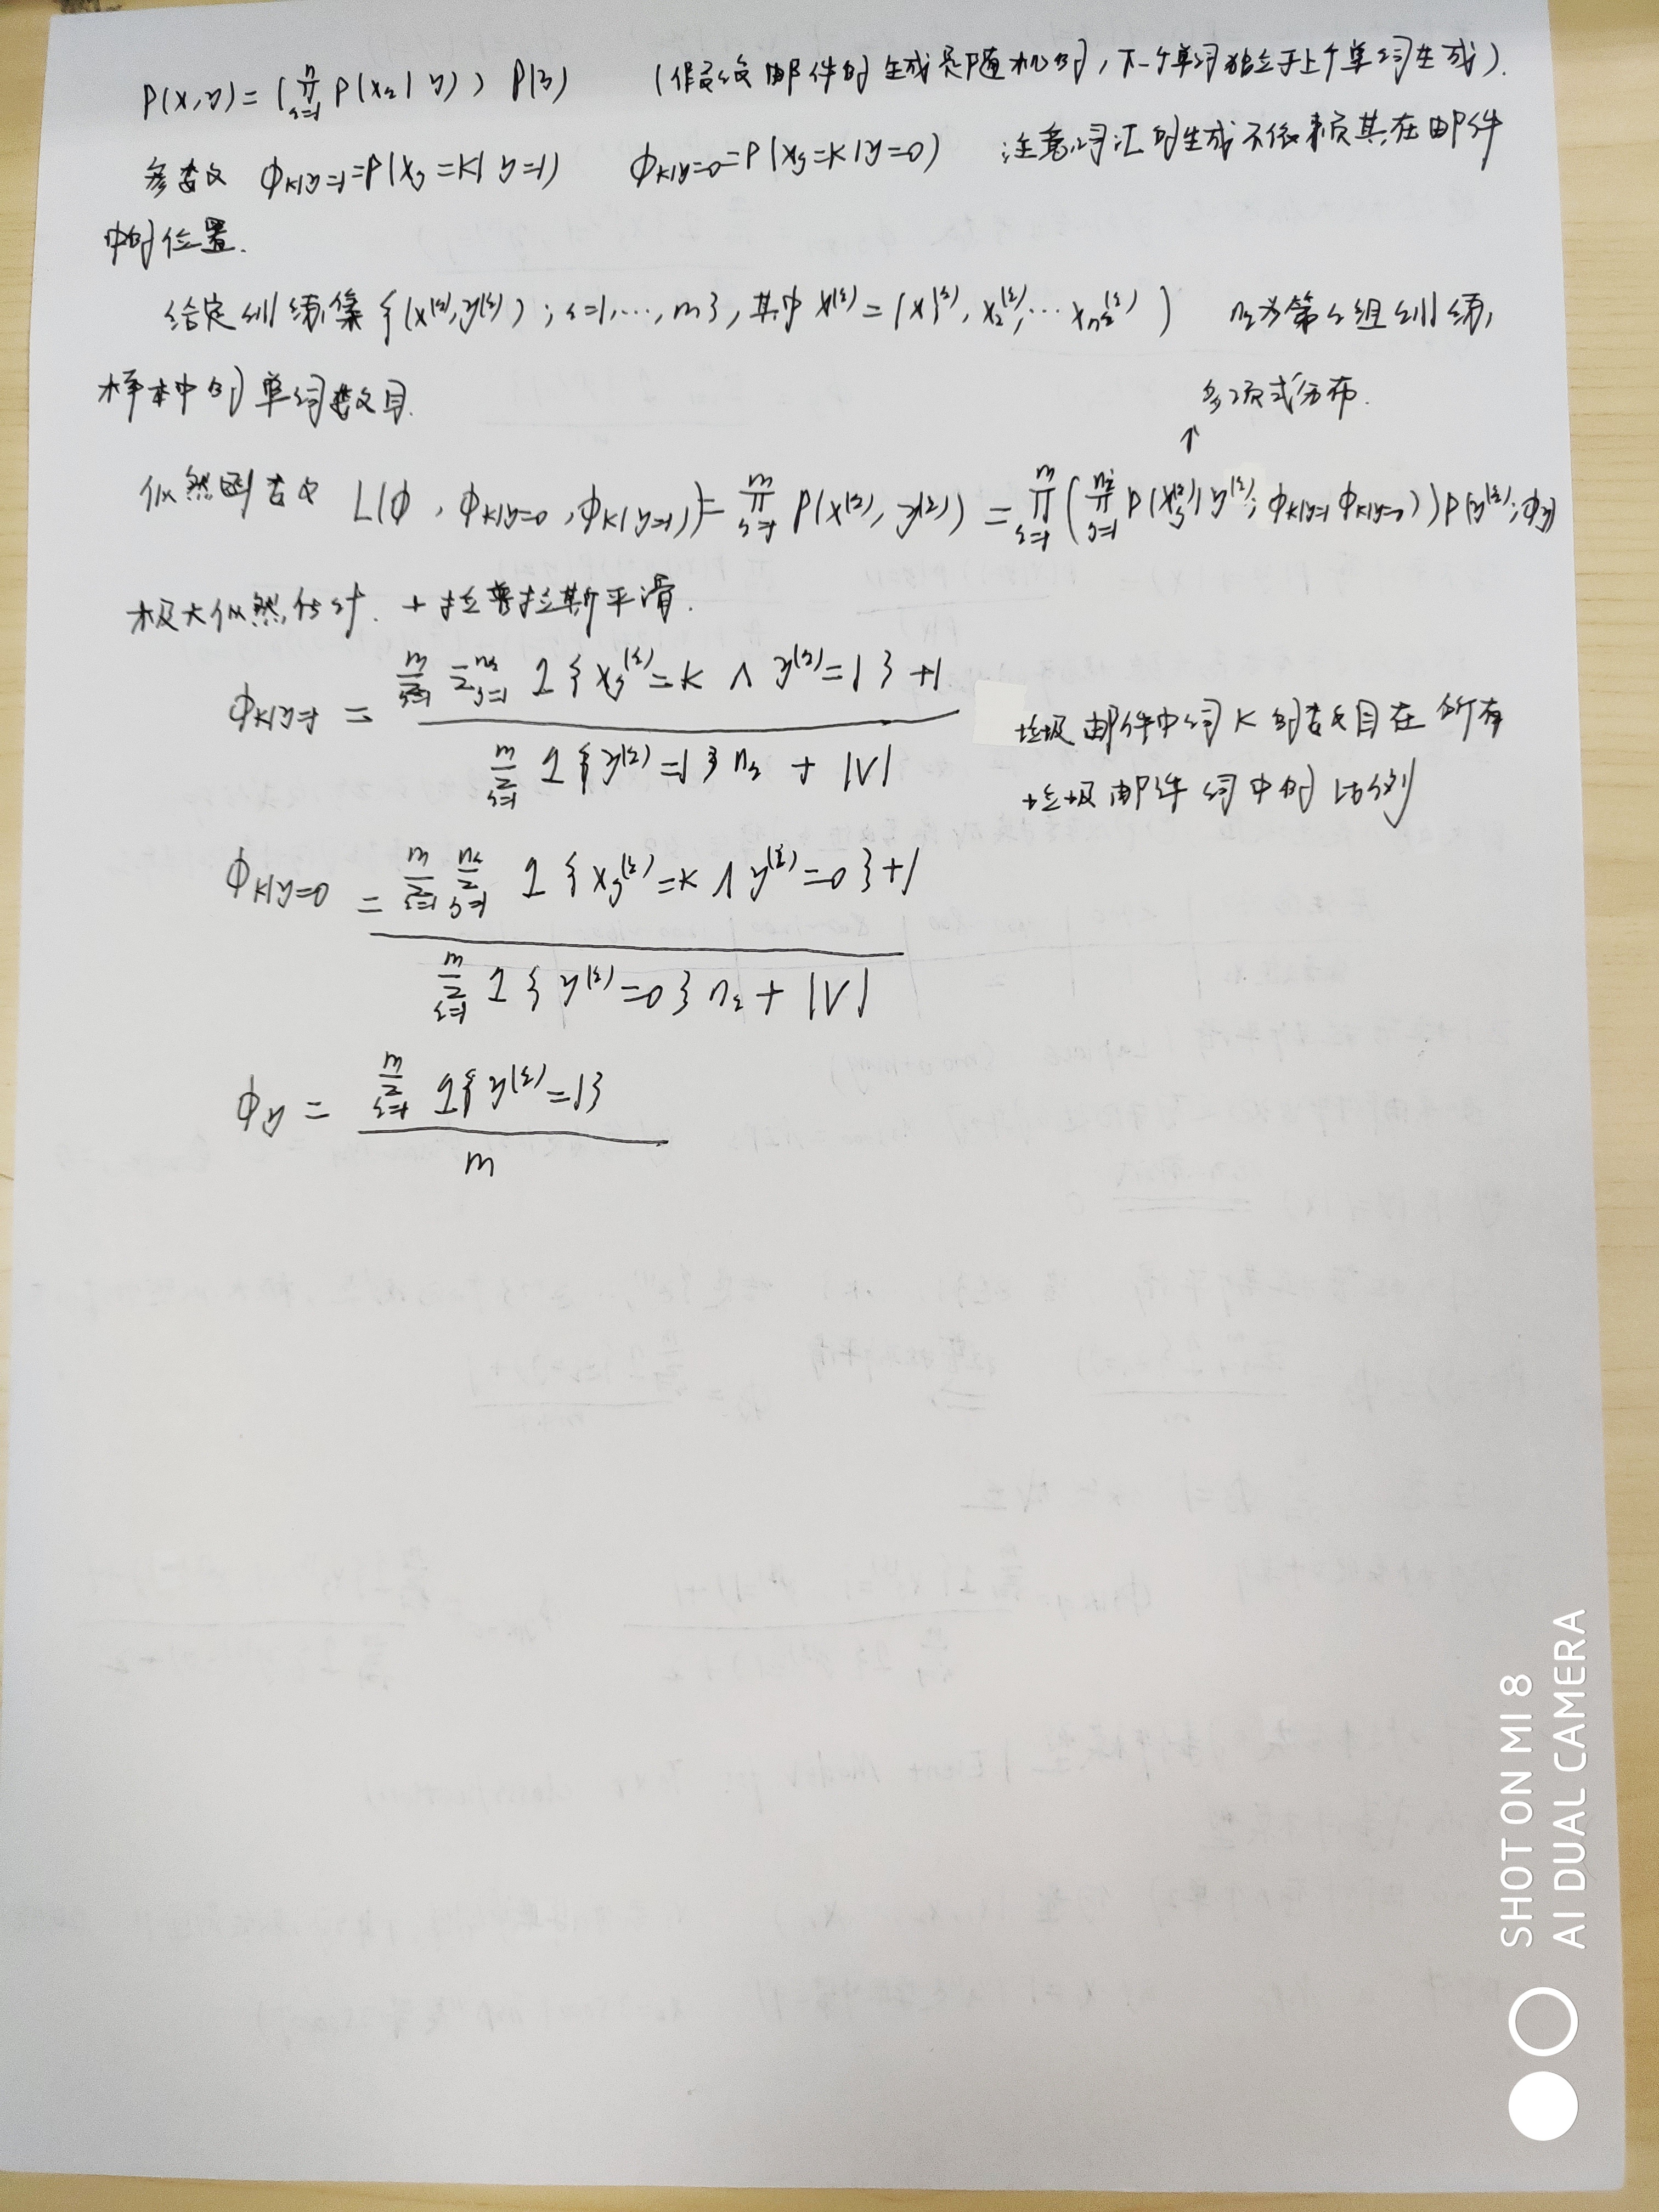 P(x,y)=(∏_{i=1}^{n} P(x_i|y)) P(y) (假设邮件的生成是随机的,下一个单词独立于上个单词生成).
参数 φ_{k|y=1}=P(x_j=k|y=1) φ_{k|y=0}=P(x_j=k|y=0) 注意词汇的生成不依赖其在邮件
中的位置.
给定训练集{(x^{(i)},y^{(i)});i=1,...,m},其中x^{(i)}=(x_1^{(i)},x_2^{(i)},...x_{n_i}^{(i)}) n_i为第i组训练
样本中的单词数目.
多项式分布.
↑
似然函数 L(φ,φ_{k|y=0},φ_{k|y=1})=∏_{i=1}^{m} P(x^{(i)},y^{(i)})=∏_{i=1}^{m}(∏_{j=1}^{n_i} P(x_j^{(i)}|y^{(i)};φ_{k|y=1} φ_{k|y=0}))P(y^{(i)};φ_y)
极大似然估计.+拉普拉斯平滑.
φ_{k|y=1} = \frac{∑_{i=1}^{m} ∑_{j=1}^{n_i} 1{x_j^{(i)}=k ∧ y^{(i)}=1}+1}{∑_{i=1}^{m} 1{y^{(i)}=1}n_i + |V|}
垃圾邮件中词K的数目在所有
垃圾邮件词中的比例
φ_{k|y=0} = \frac{∑_{i=1}^{m} ∑_{j=1}^{n_i} 1{x_j^{(i)}=k ∧ y^{(i)}=0}+1}{∑_{i=1}^{m} 1{y^{(i)}=0}n_i + |V|}
φ_y = \frac{∑_{i=1}^{m} 1{y^{(i)}=1}}{m}
SHOT ON MI 8
AI DUAL CAMERA